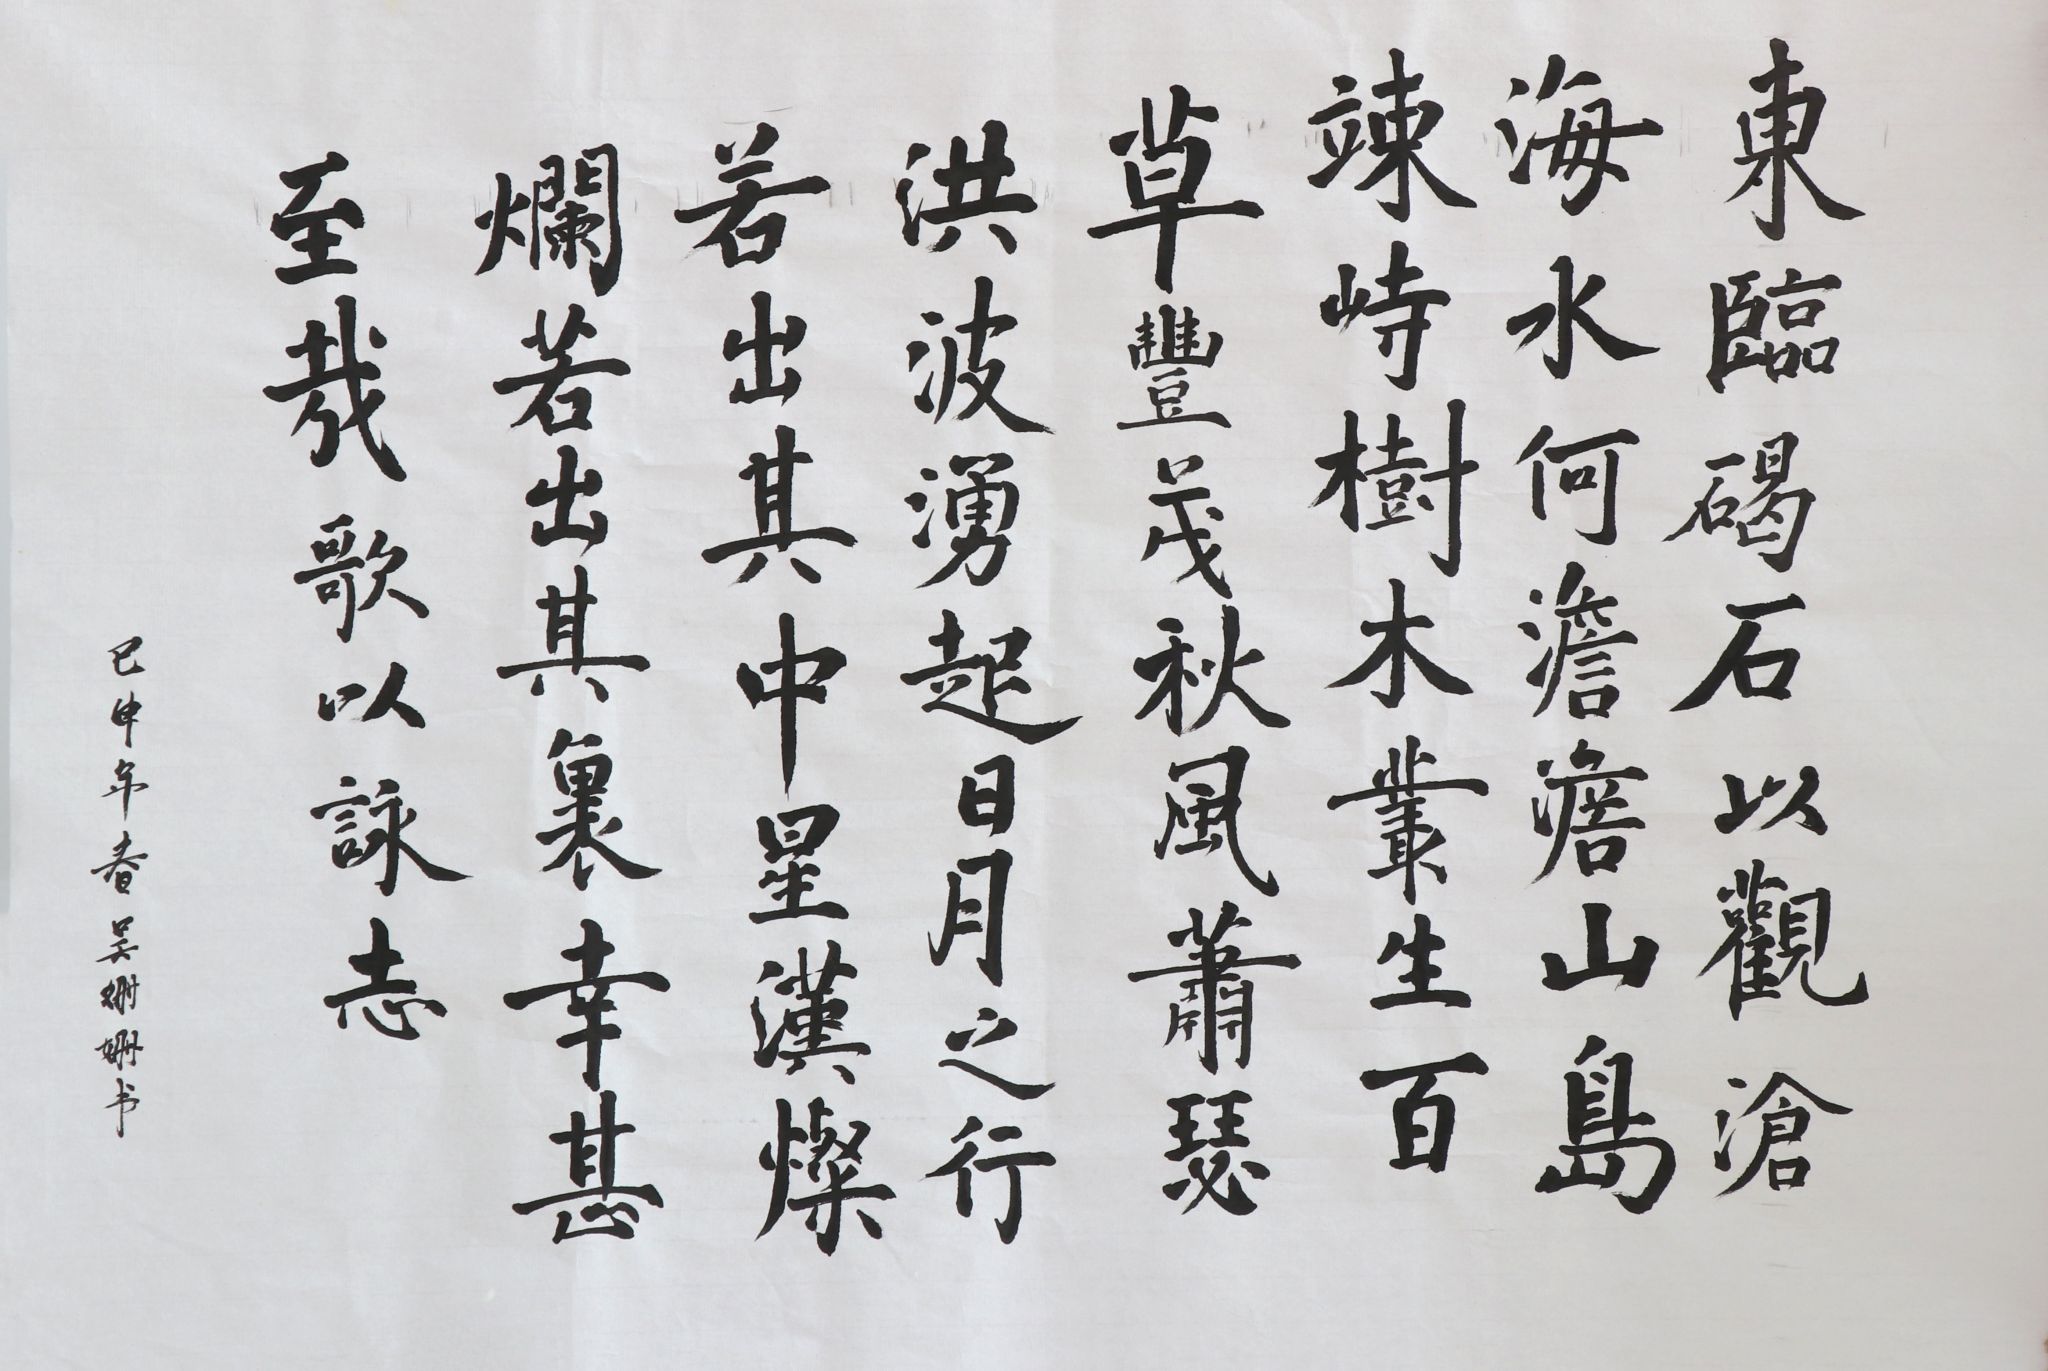 東臨碣石以觀滄
海水何澹澹山島
竦峙樹木叢生百
草豐茂秋風蕭瑟
洪波湧起日月之行
若出其中星漢燦
爛若出其裏幸甚
至哉歌以詠志
已申年春吴姗姗书